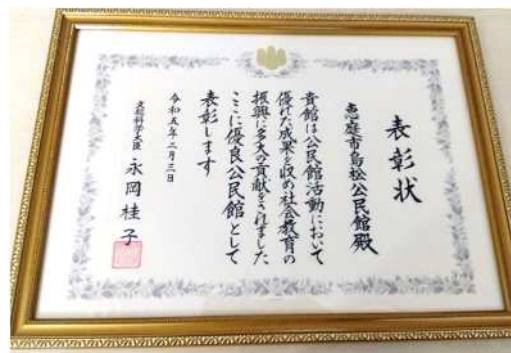 表彰状
恵庭市島松公民館殿
貴館は公民館活動において
優れた成果を収め社会教育の
振興に多大の貢献をされました
ここに優良公民館として
表彰します
令和五年二月三日
文部科学大臣 永岡桂子